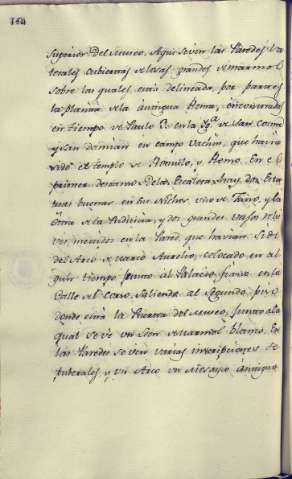 superior del museo. Aqui se ven las Paredes la-
terales cubiertas de losas grandes de marmol
sobre las quales está delineada por partes
la planta de la antigua Roma, encontradas
en tiempo de Paulo en la Yg.ª de San Cosme
y San Damian en campo Vacun, que havia
sido el templo de Romulo, y Remo. En el
primer descanso de la Escalera hay dos Esta-
tuas buenas en sus Nichos, una de Fauno, y la
otra de la Pudicicia, y dos grandes
en la Pared que havian sido
del Arco de Marco Aurelio, colocado en al-
gun tiempo junto al Palacio en la
Calle del Corso. Saliendo al segundo piso
donde está la Puerta del Museo, junto a la
qual se ve un Leon de marmol blanco. En
las Paredes se ven varias inscripciones se-
pulcrales, y un Arco un antiguo